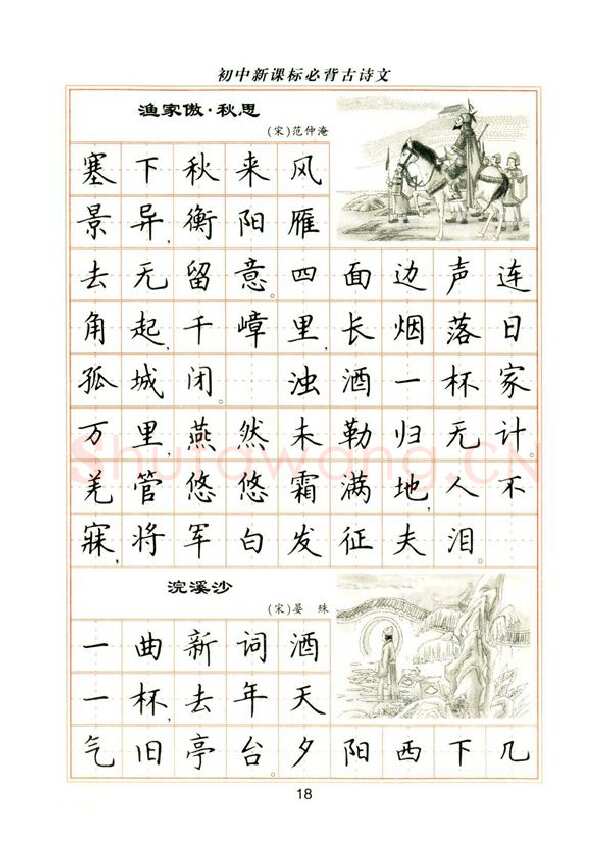 初中新课标必背古诗文
渔家傲·秋思
(宋)范仲淹
塞下秋来风
景异,衡阳雁
去无留意。四面边声连
角起,千嶂里,长烟落日
孤城闭。 浊酒一杯家
万里,燕然未勒归无计。
羌管悠悠霜满地,人不
寐,将军白发征夫泪。
浣溪沙
(宋)晏 殊
一曲新词酒
一杯,去年天
气旧亭台。夕阳西下几
18
Shufawang.CN